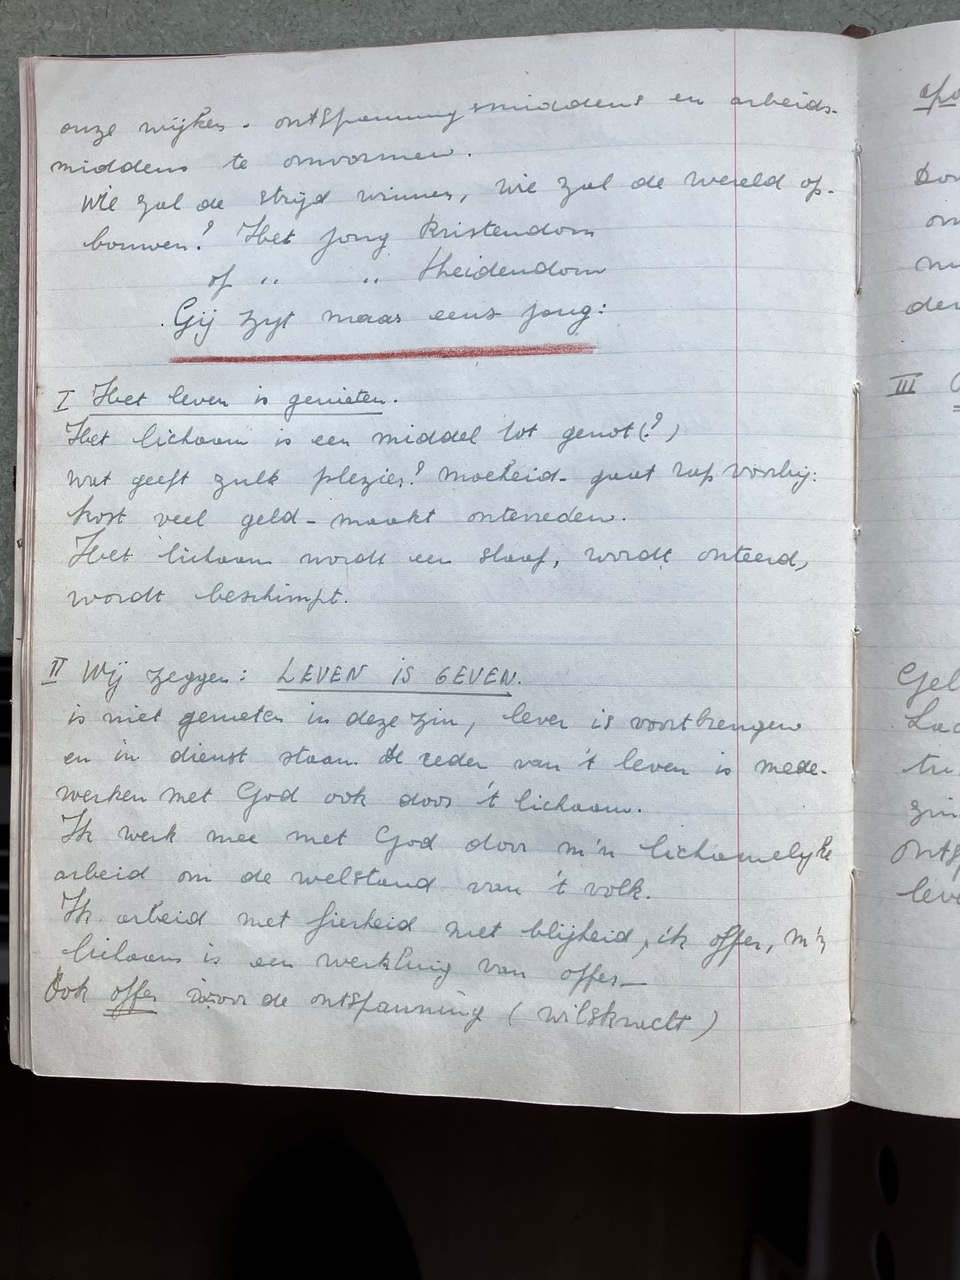 onze wijken - ontspanningsmiddens en arbeids-
middens te omvormen.
Wie zal de strijd winnen, wie zal de wereld op-
bouwen? Het jong Kristendom
of " " Heidendom
Gij zijt maar eens jong:
I Het leven is genieten.
Het lichaam is een middel tot genot (?)
Wat geeft zulk plezier? Moeheid - gaat rap voorbij:
kost veel geld - maakt ontevreden.
Het lichaam wordt een slaaf, wordt onteerd,
wordt beschimpt.
II Wij zeggen: LEVEN IS GEVEN.
is niet genieten in deze zin, leven is voortbrengen
en in dienst staan. De reden van 't leven is mede-
werken met God ook door 't lichaam.
Ik werk mee met God door m'n lichamelijke
arbeid om de welstand van 't volk.
Ik arbeid met fierheid met blijheid, ik offer, m'n
lichaam is een werktuig van offer -
Ook offer voor de ontspanning (wilskracht)
III